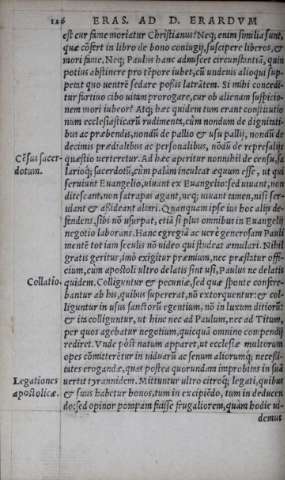 126 ERAS. AD D. ERARDVM
est cur fame moriatur Christianus? Neq; enim similia sunt,
quæ cōfert in libro de bono coniugij, suscipere liberos, &
mori fame. Neq; Paulus hanc admisset circunstantiā, quin
potius abstinere pro tēpore iubet, cū undenis alioqui sup-
petat quo uentrē sedare possis latrātem. Si mihi concedi-
tur furtiuo cibo uitam prorogare, cur ob alienam suspicio-
nem mori iubeor? Atq; hæc quidem tum erant constitutio
num ecclesiasticarū rudimenta, cùm nondum de dignitati-
bus ac præbendis, nondū de pallio & usu pallij, nondū de
decimis prædialibus ac personalibus, nodū de represalijs
Cēsus sacer-
dotum.
quæstio uerteretur. Ad hæc aperitur nonnihil de censu, sa
larioq; sacerdotū, cùm palàm inculcat æquum esse, ut qui
seruiunt Euangelio, uiuant ex Euangelio: sed uiuant, non
ditescant, non satrapas agant, neq; uiuant tamen, nisi ser-
uiant & aßideant altari. Quanquam ipse ius hoc alijs de-
fendens, sibi nō usurpat, etiā si plus omnibus in Euangelij
negotio laborans. Hanc egregiā ac uerè generosam Pauli
mentē tot iam seculis nō uideo qui studeat æmulari. Nihil
gratis geritur, imò exigitur præmium, nec præstatur offi-
cium, cùm apostoli ultro delatis sint usi, Paulus ne delatis
Collatio.
quidem. Colliguntur & pecuniæ, sed quæ sponte confere-
bantur ab his, quibus supererat, nō extorquentur: & col-
liguntur in usus sanctorū egentium, nō in luxum ditiorū:
& ita colliguntur, ut huic nec ad Paulum, nec ad Titum,
per quos agebatur negotium, quicquā omnino compendij
rediret. Vnde pòst natum apparet, ut ecclesiæ multorum
opes cōmitterētur in uiduarū ac senum aliorumq; necessi-
tates erogandæ, quæ postea quorundam improbitas in suā
Legationes
apostolicæ.
uertit tyrannidem. Mittuntur ultro citroq; legati, quibus
& suus habetur honos, tum in excipiēdo, tum in deducen
do: sed opinor pompam fuisse frugaliorem, quàm hodie ui-
demus